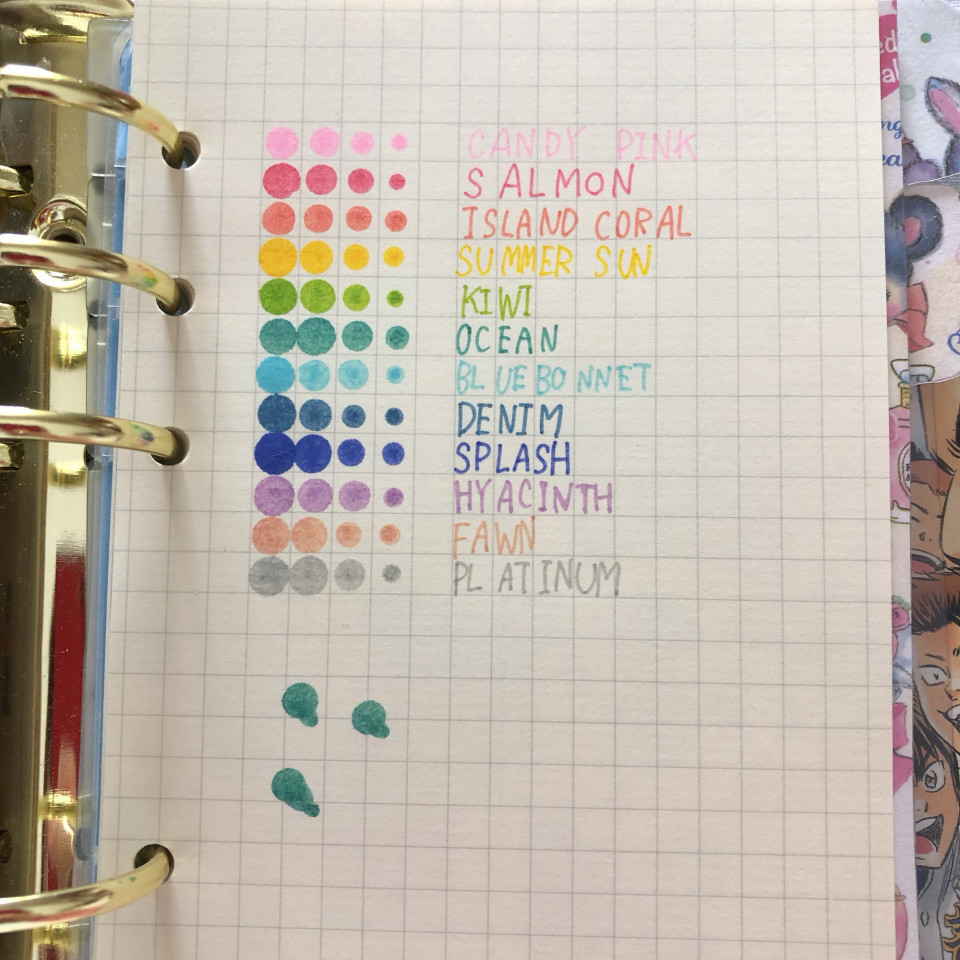 CANDY PINK
SALMON
ISLAND CORAL
SUMMER SUN
KIWI
OCEAN
BLUEBONNET
DENIM
SPLASH
HYACINTH
FAWN
PLATINUM